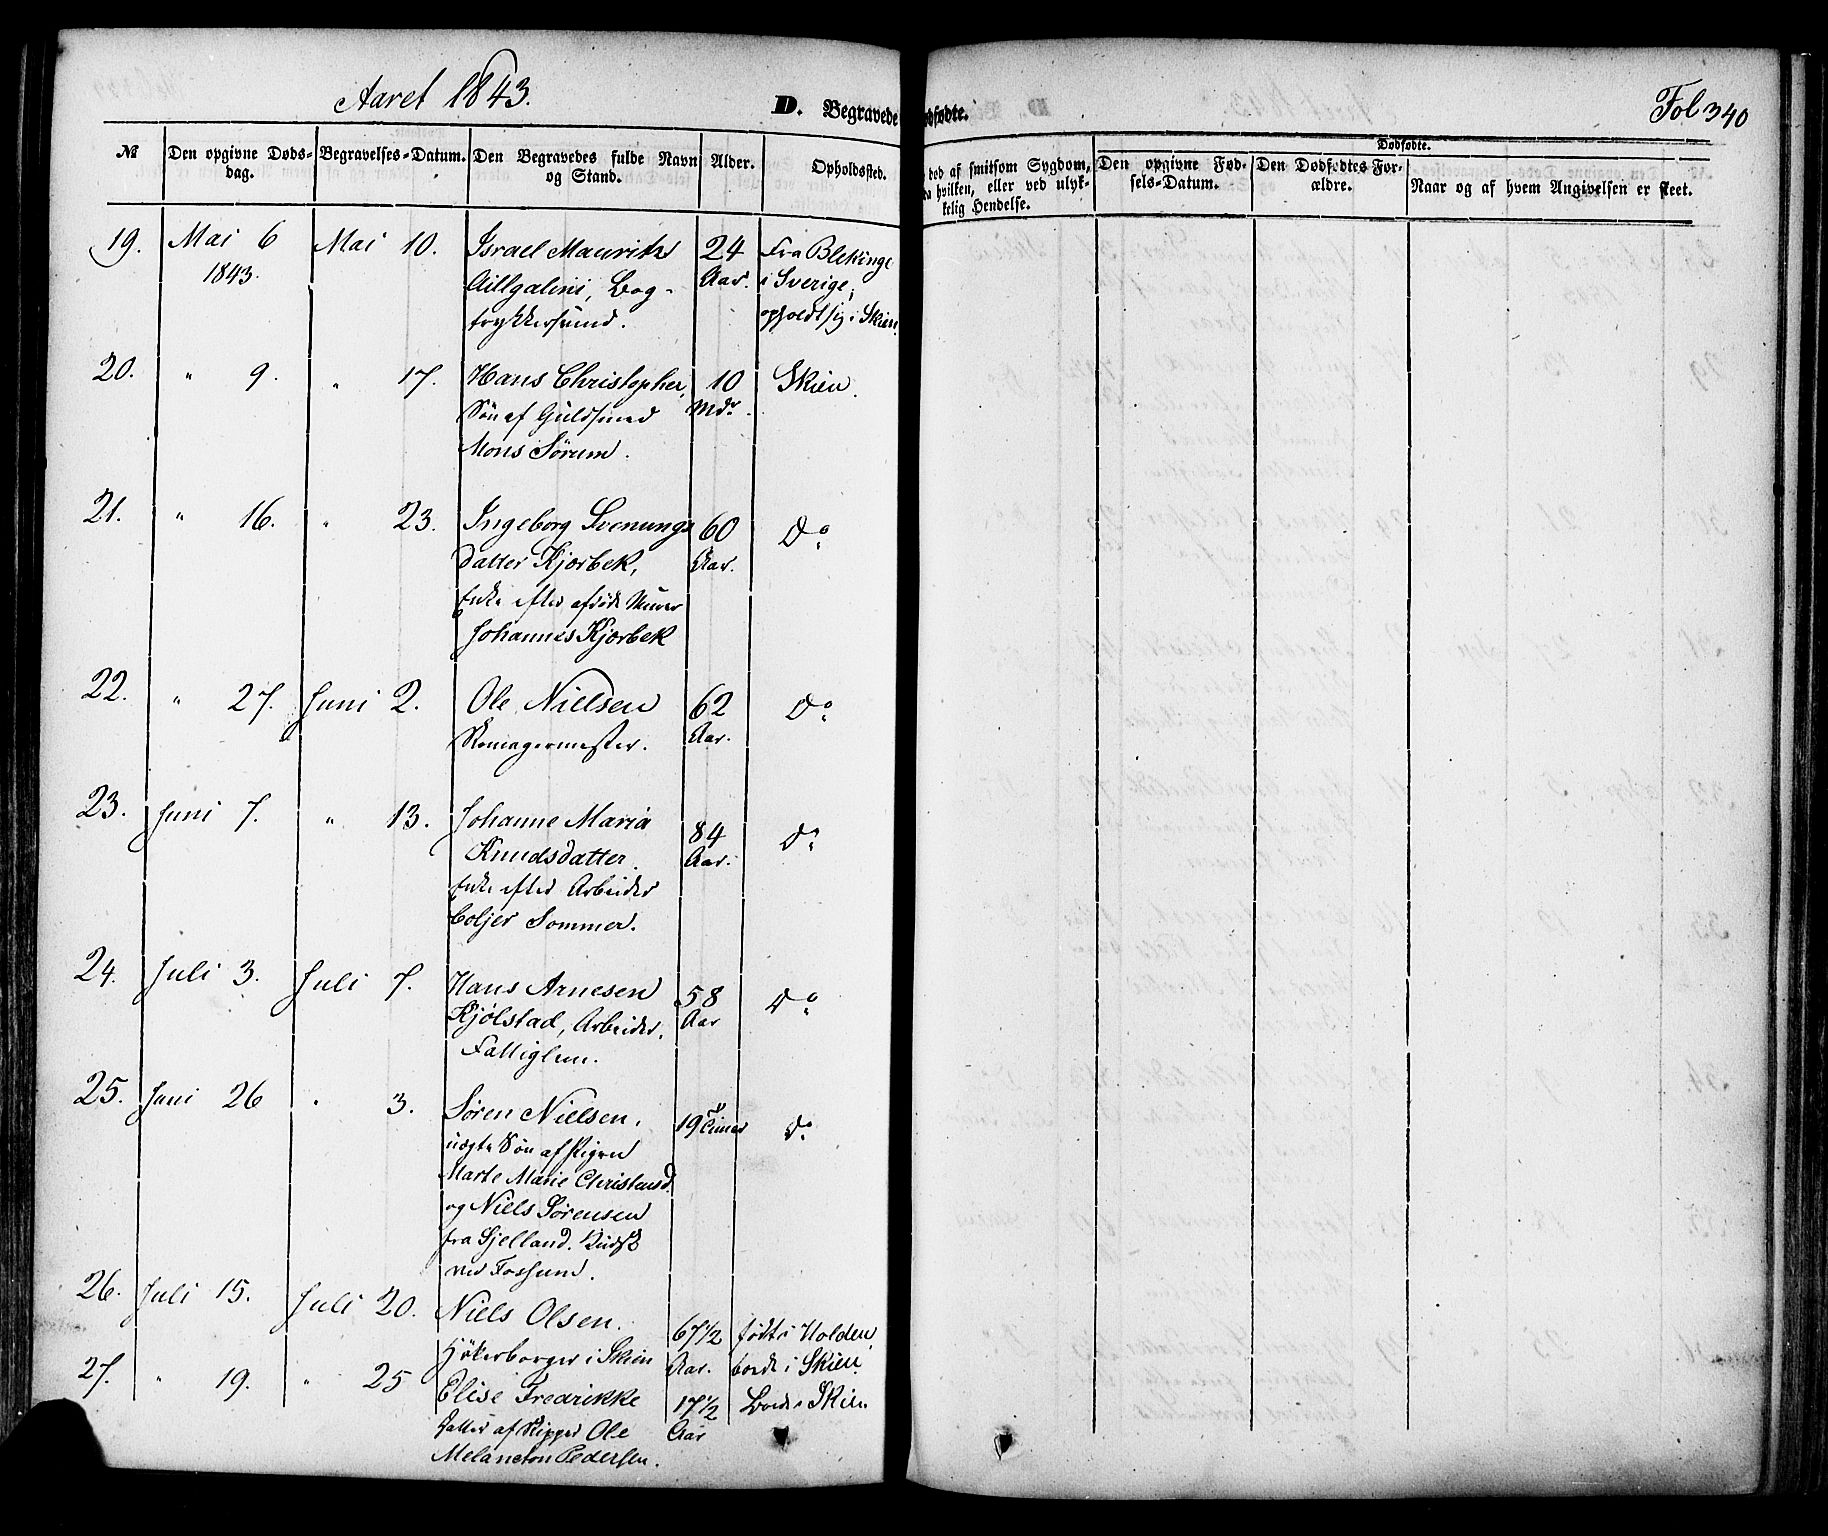 Aaret 1843.
D. Begravede
dfødte.
Fol 340
№
Den opgivne Døds-
dag.
Begravelses-Datum.
Den Begravedes fulde Navn
og Stand.
Alder.
Opholdssted.
død af smitsom Sygdom,
hvilken, eller ved ulyk-
kelig Hendelse.
Dødfødte.
Den opgivne Fød-
sels-Datum.
Den Dødfødtes For-
ældre.
Naar og af hvem Angivelsen er skeet.
19. Mai 6 1843. Mai 10. Israel Mauritz 24 Aar. Fra Blekinge
Bog-
i Sverige,
trykkersvend.
opholdt sig i Skien.
20. " 9. " 17. Hans Christopher, 10 Mdr. Skien.
Søn af Guldsmed
Mons Sørum.
21. " 16. " 23. Ingeborg Svenungs 60 Aar. Do
datter Kjørbek,
Enke efter afdøde Murer
Johannes Kjørbek
22. " 27. Juni 2. Ole Nielsen 62 Aar. Do
Skomagermester.
23. Juni 7. " 13. Johanne Maria 84 Aar. Do
Knudsdatter.
Enke efter Arbeider
Coljer Sommer.
24. Juli 3. Juli 7. Hans Arnesen 58 Aar Do
Kjølstad, Arbeider,
Fattiglem.
25. Juni 26 " 3. Søren Nielsen, 19 Timer Do
uægte Søn af Pigen
Marte Marie Christensd.
og Niels Sørensen
fra Sjelland.
ved Fossum.
26. Juli 15. Juli 20. Niels Olsen. 67½ Aar. født i Holden
Høkerborger i Skien
boede i Skien.
27. " 19. " 25 Elise Fredrikke 17½ Aar Boede i Skien
Datter af Skipper Ole
Melancton Pedersen.